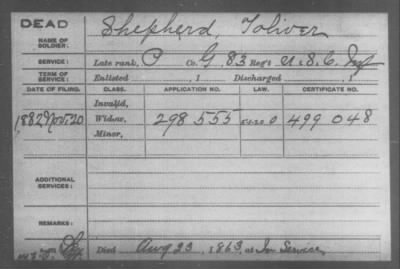 DEAD
NAME OF SOLDIER: Shepherd, Toliver
SERVICE: Late rank, P Co. G, 83 Reg't U.S.C. Inf
TERM OF SERVICE: Enlisted , 1 Discharged , 1
DATE OF FILING. CLASS. APPLICATION NO. LAW. CERTIFICATE NO.
Invalid,
1882 Nov. 20 Widow, 298 555 499 048
Minor,
ADDITIONAL SERVICES:
REMARKS:
Died Aug 23, 1863, at In Service